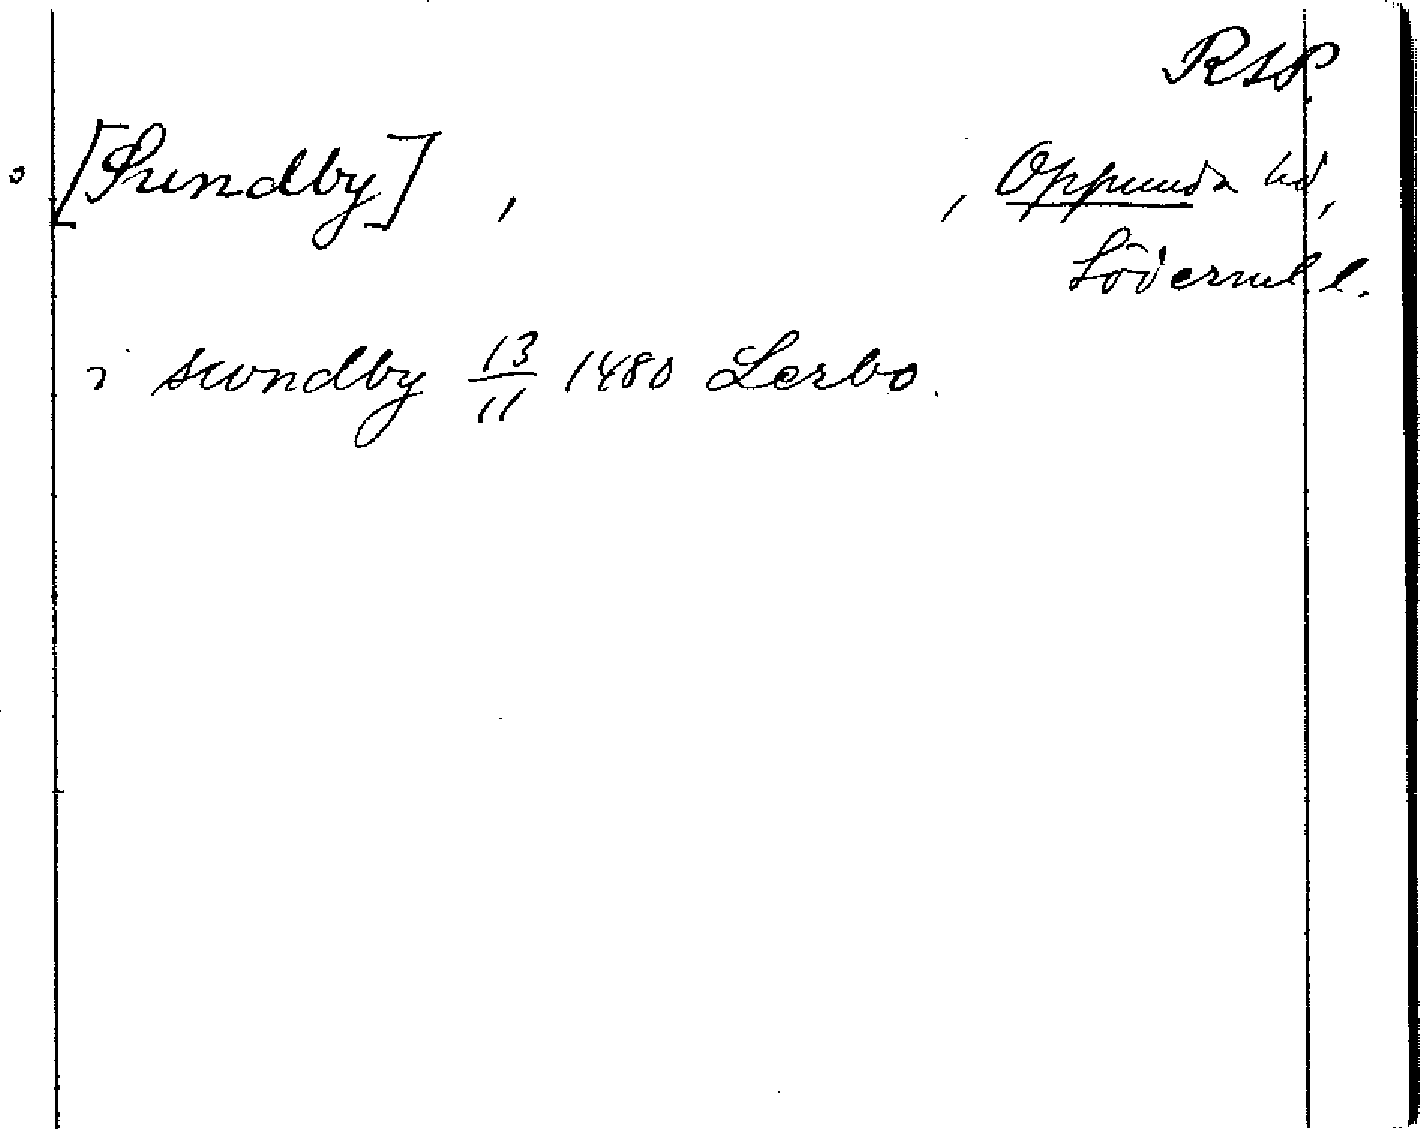 RAP
[Sundby] , , Oppunda hd,
Söderml l.
i swndby 13/11 1480 Lerbo.